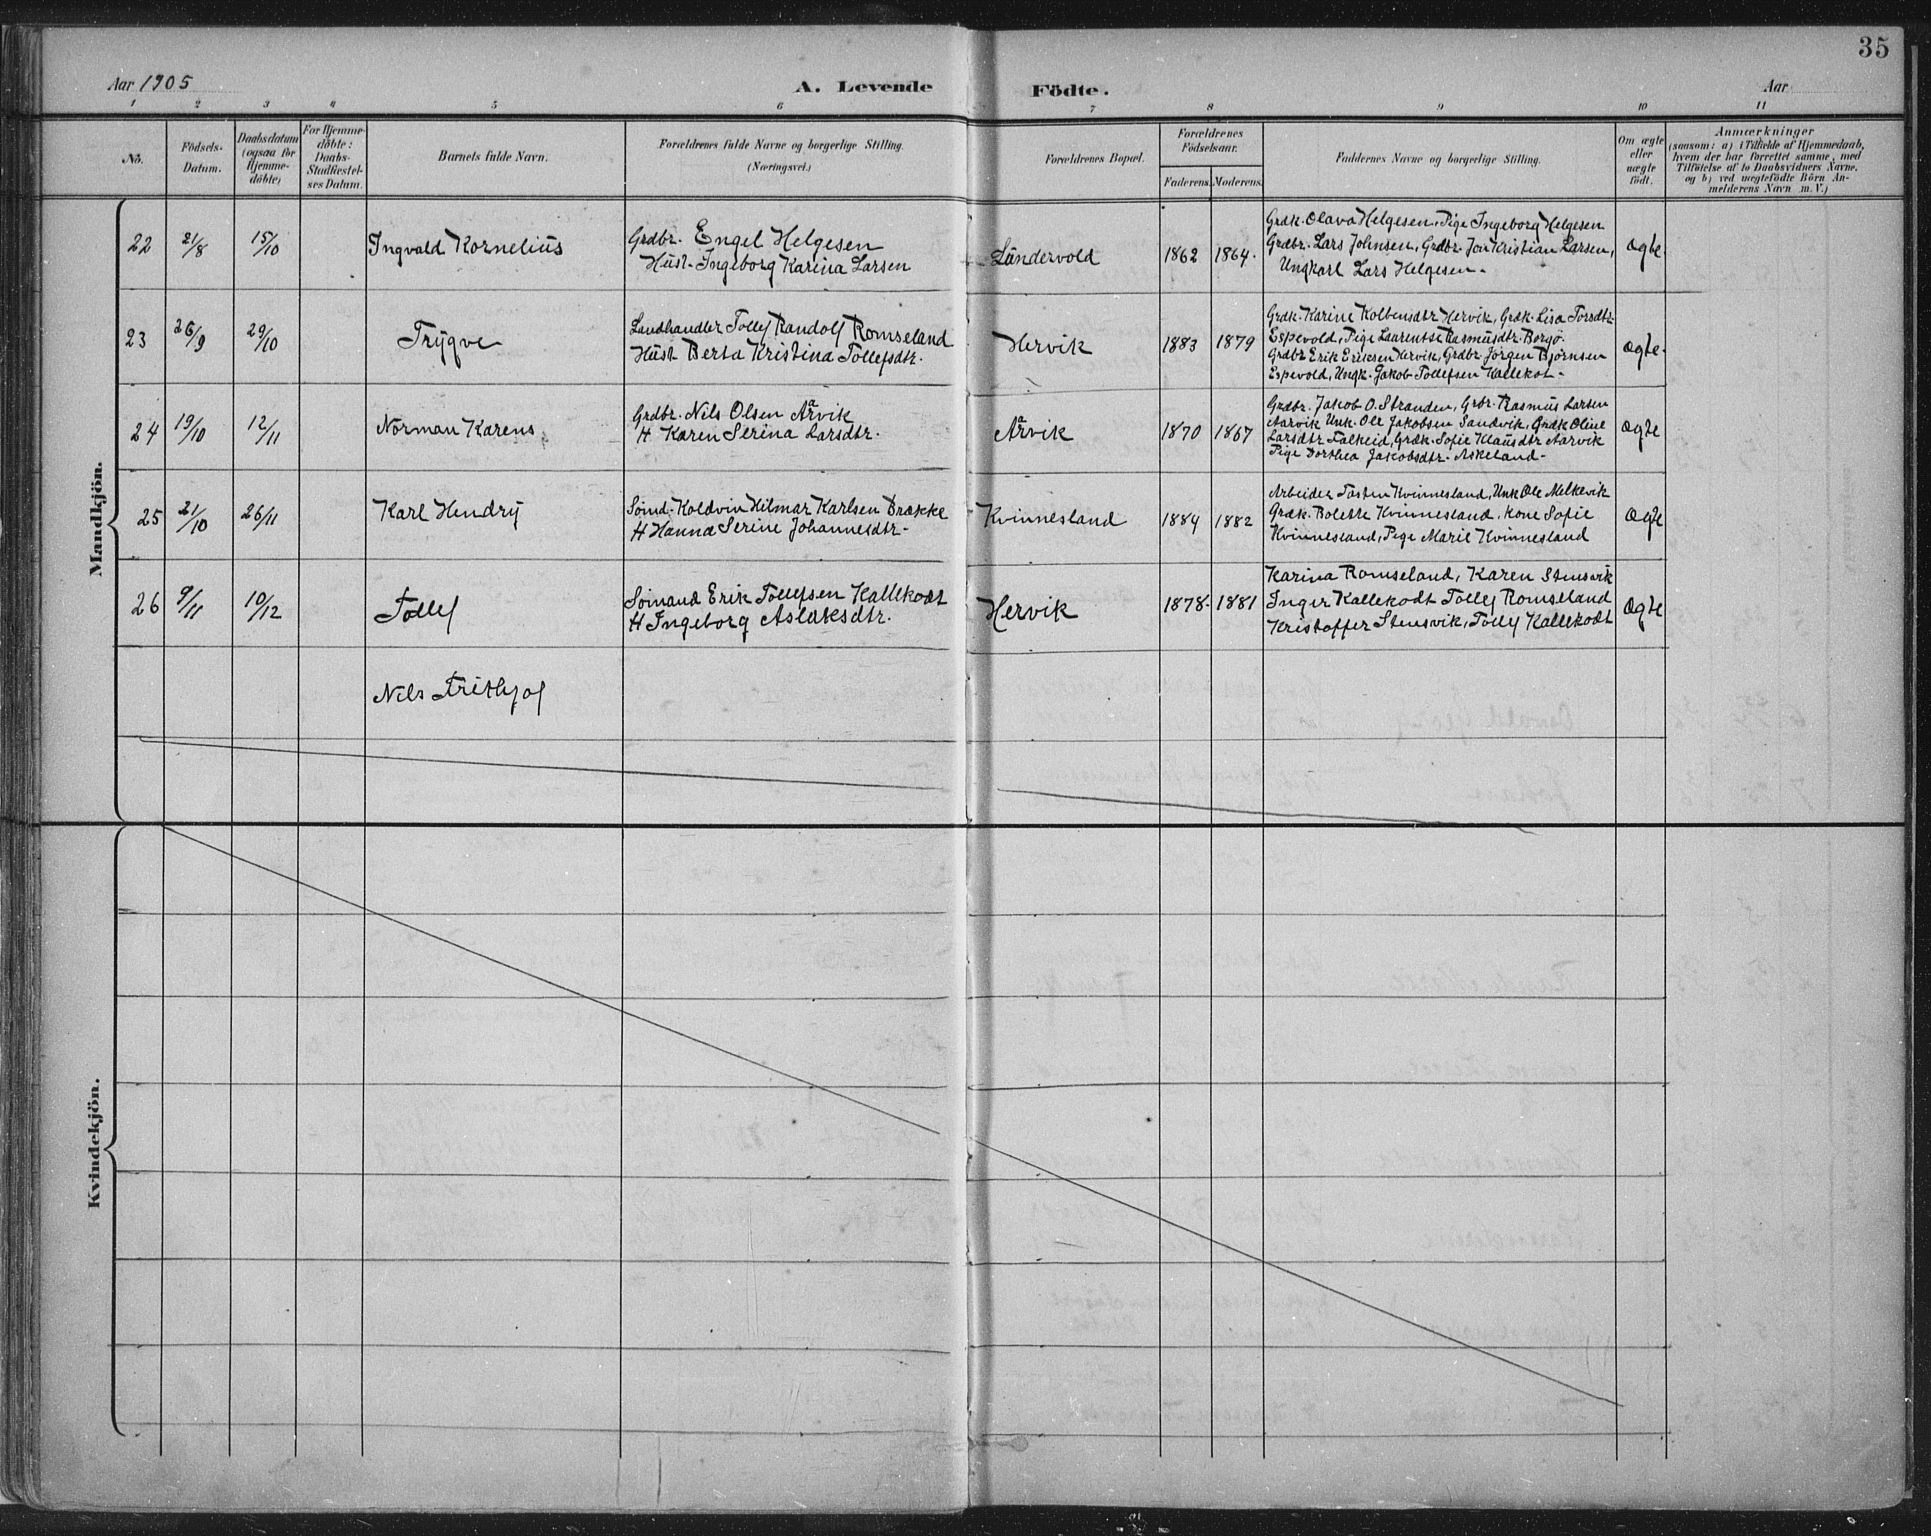 35
Aar 1905
A. Levende Födte.
Aar
1 2 3 4 5 6 7 8 9 10 11
No.
Födsels-
Datum.
Daabsdatum
(ogsaa for
Hjemme-
döbte)
For Hjemme-
döbte:
Daabs-
Stadfæstel-
ses Datum.
Barnets fulde Navn.
Forældrenes fulde Navne og borgerlige Stilling.
(Næringsvei.)
Forældrenes Bopæl.
Forældrenes
Födselsaar.
Faderens. Moderens.
Faddernes Navne og borgerlig Stilling.
Om ægte
eller
uægte
födt.
Anmærkninger
(saasom: a) i Tilfælde af Hjemmedaab,
hvem der har forrettet samme, med
Tilföielse af to Daabsvidners Navne,
og b) ved uægtefödte Börn An-
melderens Navn m. V.)
Mandkjön.
22 21/8 15/10 Ingvald Kornelius
Grdbr. Engel Helgesen
Hust. Ingeborg Karina Larsen
Lundervold 1862 1864.
Grdk. Olava Helgesen, Pige Ingeborg Helgesen
Grdbr. Lars Johnsen, Grdbr. Jon Kristian Larsen,
Ungkarl Lars Helgesen.
Ægte
23 26/9 29/10 Trygve
Landhandler Tollef Randolf Romseland
Hust Berta Kristina Tollefsdtr.
Hervik 1883 1879
Grdk. Karine Kolbensdtr Hervik, Grdk. Lisa Torsdtr
Espevold, Pige Laurentse Rasmusdtr. Borgø.
Grdbr Erik Eriksen Hervik, Grdbr. Jørgen Bjørnsen
Espevold, Ungk. Jakob Tollefsen Kallekot.
Ægte.
24 19/10 12/11 Norman Karens
Grdbr. Nils Olsen Aarvik
H Karen Serina Larsdtr.
Aarvik 1870 1867
Grdbr. Jakob O. Stranden, Grbr. Rasmus Larsen
Aarvik Unk. Ole Jakobsen Sandvik, Grdk Oline
Larsdtr Falkeid, Grdk. Sofie Klausdtr Aarvik
Pige Dorthea Jakobsdtr. Askeland.
Ægte
25 21/10 26/11 Karl Hendry
Sømd. Koldvin Hilmar Karlsen Brække
H Hanna Serine Johannesdtr.
Kvinnesland 1884 1882
Arbeider Tosten Kvinnesland, Unk Ole Melkevik
Grdk. Bolette Kvinnesland, Kone Sofie
Kvinnesland, Pige Marie Kvinnesland
Ægte
26 9/11 10/12 Tollef
Sømand Erik Tollefsen Kallekodt
H Ingeborg Aslaksdtr.
Hervik 1878. 1881
Karina Romseland, Karen Stensvik
Inger Kallekodt Tollef Romseland
Kristoffer Stensvik, Tollef Kallekodt
Ægte
Nils Frithjof
Kvindekjön.